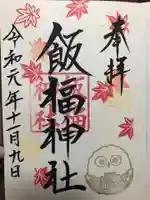 奉拝
飯福神社
令和元年十一月九日